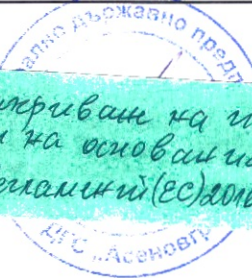 ално държавно предп
криван на п
на основани
егламент (ЕС) 2016
ДГС „Асеновгр